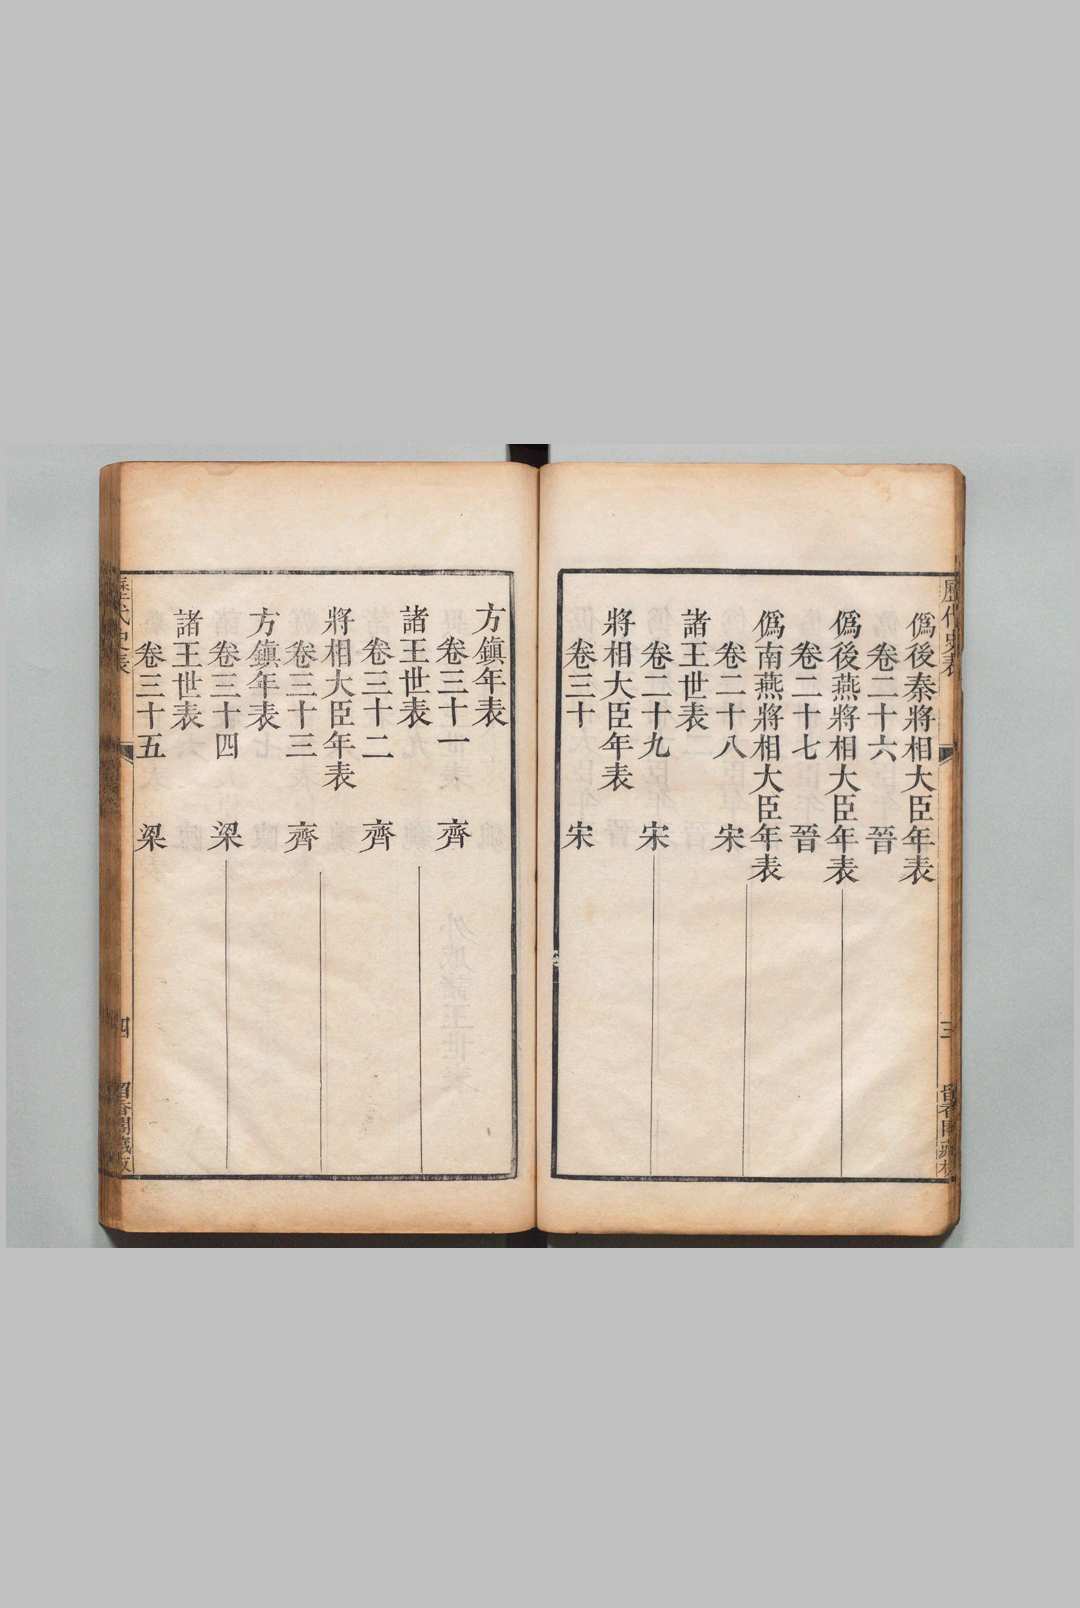 歷代史表
僞後秦將相大臣年表
卷二十六 晉
僞後燕將相大臣年表
卷二十七 晉
僞南燕將相大臣年表
卷二十八 宋
諸王世表
卷二十九 宋
將相大臣年表
卷三十 宋
三
方鎮年表
卷三十一 齊
諸王世表
卷三十二 齊
將相大臣年表
卷三十三 齊
方鎮年表
卷三十四 梁
諸王世表
卷三十五 梁
歷代史表
四
留香閣藏板